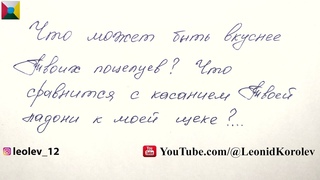 Что может быть вкуснее
Твоих поцелуев? Что
сравнится с касанием Твоей
ладони к моей щеке?...
leolev_12
YouTube.com/@LeonidKorolev